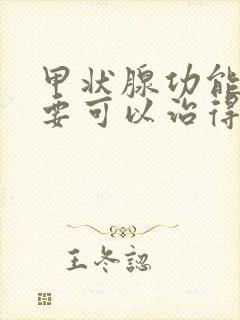 甲状腺功能
要可以治得
王冬認